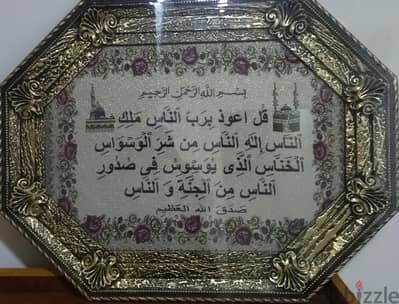 بسم الله الرحمن الرحيم
قل اعوذ برب الناس ملك
الناس اله الناس من شر الوسواس
الخناس الذى يوسوس فى صدور
الناس من الجنة و الناس
صدق الله العظيم